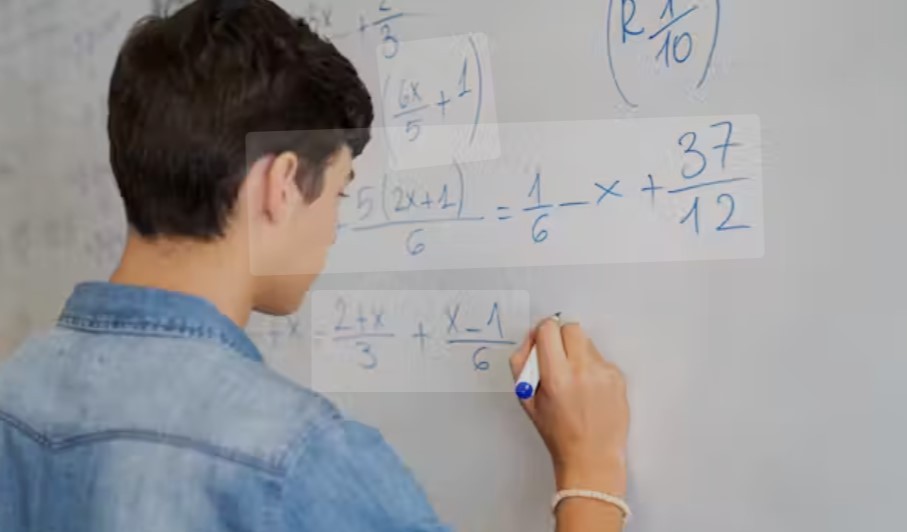 + 2/3
(R 1/10)
(6x/5 + 1)
5(2x+1)/6 = 1/6 - x + 37/12
+ x - 2+x/3 + x-1/6